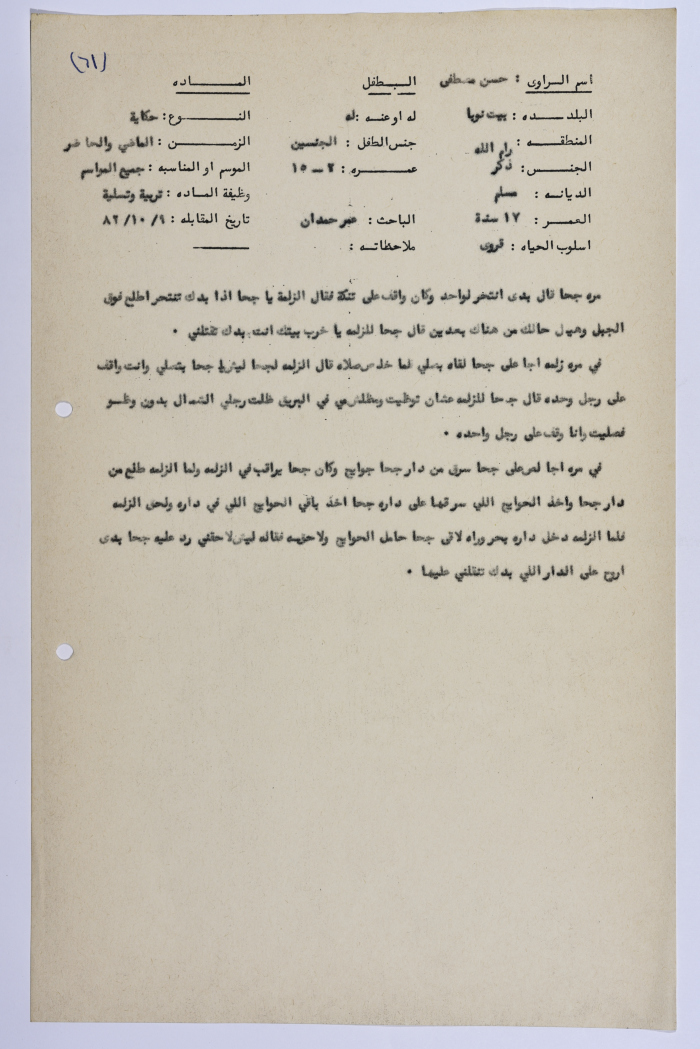 (٦١)
اسم الراوى : حسن مصطفى الطفل المادة
البلدة : بيت نوبا له او عنه : له النوع : حكاية
المنطقة : رام الله جنس الطفل : الجنسين الزمن : الماضي والحاضر
الجنس : ذكر عمره : ٢ – ١٥ الموسم او المناسبه : جميع المواسم
الديانه : مسلم وظيفة الماده : تربية وتسلية
العمر : ١٧ سنة الباحث : عمر حمدان تاريخ المقابله : ٩ /١٠ /٨٢
اسلوب الحياه : قروى ملاحظاته :
مره جحا قال بدى انتخر لواحد وكان واقف على تنكة فقال الزلمة يا جحا اذا بدك تنتحر اطلع فوق
الجبل وهيل حالك من هناك بعدين قال جحا للزلمه يا خرب بيتك انت بدك تقتلني .
في مره زلمه اجا على جحا لقاه بصلي فما خلص صلاه قال الزلمه لجحا ليش يا جحا بتصلي وانت واقف
على رجل وحده قال جحا للزلمه عشان توظيت ومظلش مي في البريق ظلت رجلي الشمال بدون وظو
فصليت وانا وقف على رجل واحده .
في مره اجا لص على جحا سرق من دار جحا حوايج وكان جحا يراقب في الزلمه ولما الزلمه طلع من
دار جحا واخذ الحوايج اللي سرقها على داره جحا اخذ باقي الحوايج اللي في داره ولحق الزلمه
فلما الزلمه دخل داره بحر وراه لاقى جحا حامل الحوايج ولاحقه فقاله ليش لاحقني رد عليه جحا بدى
اروح على الدار اللي بدك تنقلني عليها .